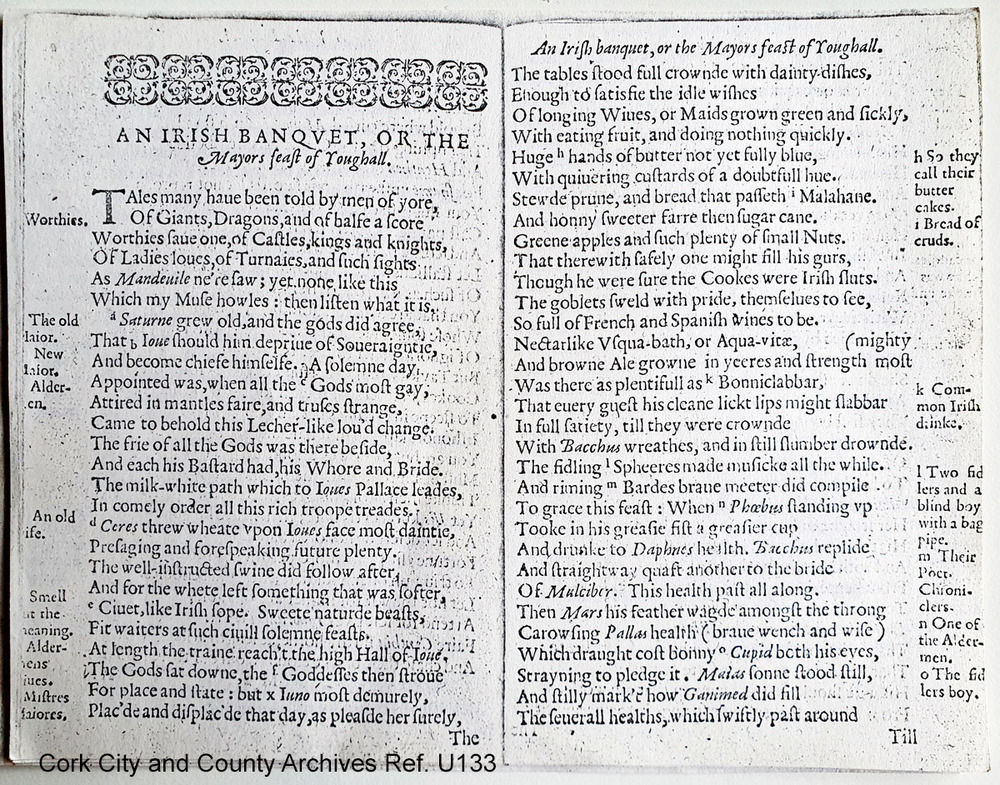 AN IRISH BANQVET, OR THE
Mayors feast of Youghall.
TAles many haue been told by men of yore,
Of Giants, Dragons, and of halfe a score
Worthies saue one, of Castles, kings and knights,
Of Ladies loues, of Turnaies, and such sights
As Mandeuile ne're saw; yet none like this
Which my Muse howles: then listen what it is.
a Saturne grew old, and the gods did agree,
That b Ioue should him depriue of Soueraigntie,
And become chiefe himselfe. A solemne day
Appointed was, when all the c Gods most gay,
Attired in mantles faire, and truses strange,
Came to behold this Lecher-like lou'd change.
The frie of all the Gods was there beside,
And each his Bastard had, his Whore and Bride.
The milk-white path which to Ioues Pallace leades,
In comely order all this rich troope treades.
d Ceres threw wheate vpon Ioues face most daintie,
Presaging and forespeaking future plenty.
The well-instructed swine did follow after,
And for the whete left something that was softer,
e Ciuet, like Irish sope. Sweete naturde beasts,
Fit waiters at such ciuill solemne feasts.
At length the traine reach't the high Hall of Ioue,
The Gods sat downe, the f Goddesses then stroue
For place and state: but x Iuno most demurely,
Plac'de and displac'de that day, as pleasde her surely,
The
Worthies.
The old
Maior.
New
Alder-
An old
Smell
at the
Alder-
Mistres
An Irish banquet, or the Mayors feast of Youghall.
The tables stood full crownde with dainty dishes,
Enough to satisfie the idle wishes
Of longing Wiues, or Maids grown green and sickly,
With eating fruit, and doing nothing quickly.
Huge h hands of butter not yet fully blue,
With quiuering custards of a doubtfull hue.
Stewde prune, and bread that passeth i Malahane.
And honny sweeter farre then sugar cane.
Greene apples and such plenty of small Nuts.
That therewith safely one might fill his guts,
Though he were sure the Cookes were Irish sluts.
The goblets sweld with pride, themselues to see,
So full of French and Spanish wines to be.
Nectarlike Vsqua-bath, or Aqua-vitæ, (mighty
And browne Ale growne in yeeres and strength most
Was there as plentifull as k Bonniclabbar,
That euery guest his cleane lickt lips might slabbar
In full satiety, till they were crownde
With Bacchus wreathes, and in still slumber drownde.
The fidling l Spheeres made musicke all the while.
And riming m Bardes braue meeter did compile
To grace this feast: When n Phœbus standing vp
Tooke in his greasie fist a greasier cup
And drunke to Daphnes health. Bacchus replide
And straightway quaft another to the bride
Of Mulciber. This health past all along.
Then Mars his feather wagde amongst the throng
Carowsing Pallas health (braue wench and wise)
Which draught cost bonny o Cupid both his eyes,
Strayning to pledge it. Maias sonne stood still,
And stilly mark't how Ganimed did fill
The seuerall healths, which swiftly past around
Till
h So they
call their
butter
cakes.
i Bread of
cruds.
k Com-
mon Irish
drinke.
l Two fid
lers and a
blind boy
with a bag
pipe.
m Their
Poet.
Chroni-
clers.
n One of
the Alder-
men.
o The fid
lers boy.
Cork City and County Archives Ref. U133